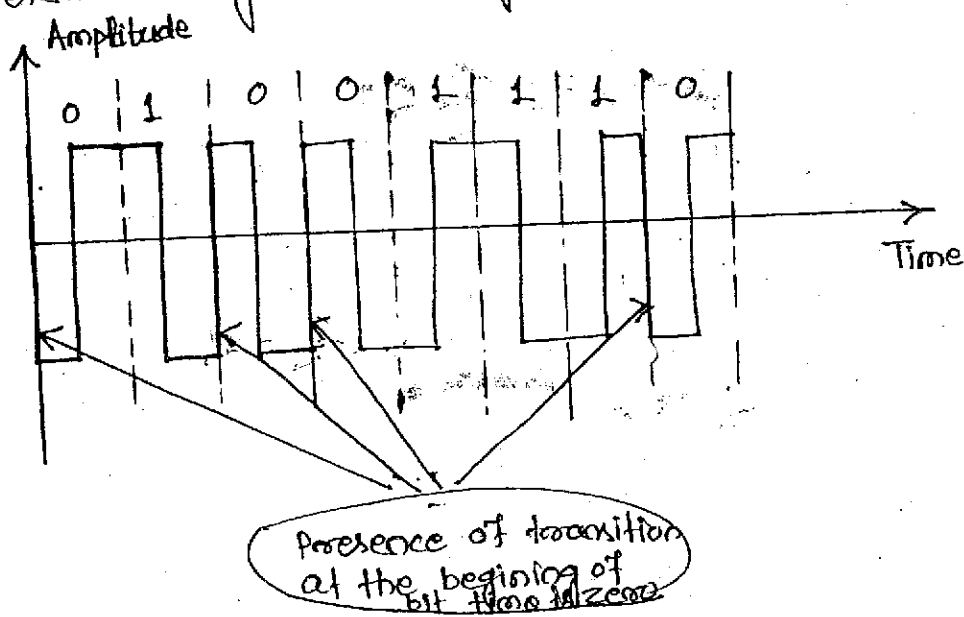 Amplitude
0 1 0 0 1 1 1 0
Time
Presence of transition
at the begining of
bit time is zero